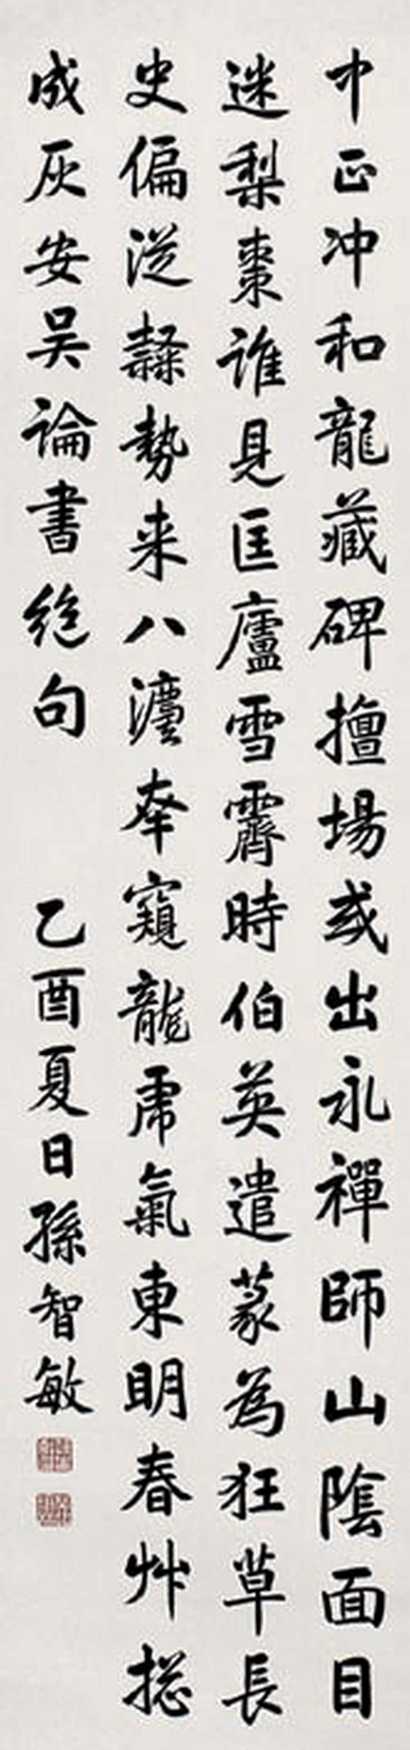 中正冲和龍藏碑擅場或出永禪師山陰面目
迷梨棗誰見匡廬雪霽時伯英遣篆為狂草長
史偏從隸勢来八濬奉窺龍虎氣東明春艸揔
成灰安吳論書絶句　　乙酉夏日孫智敏